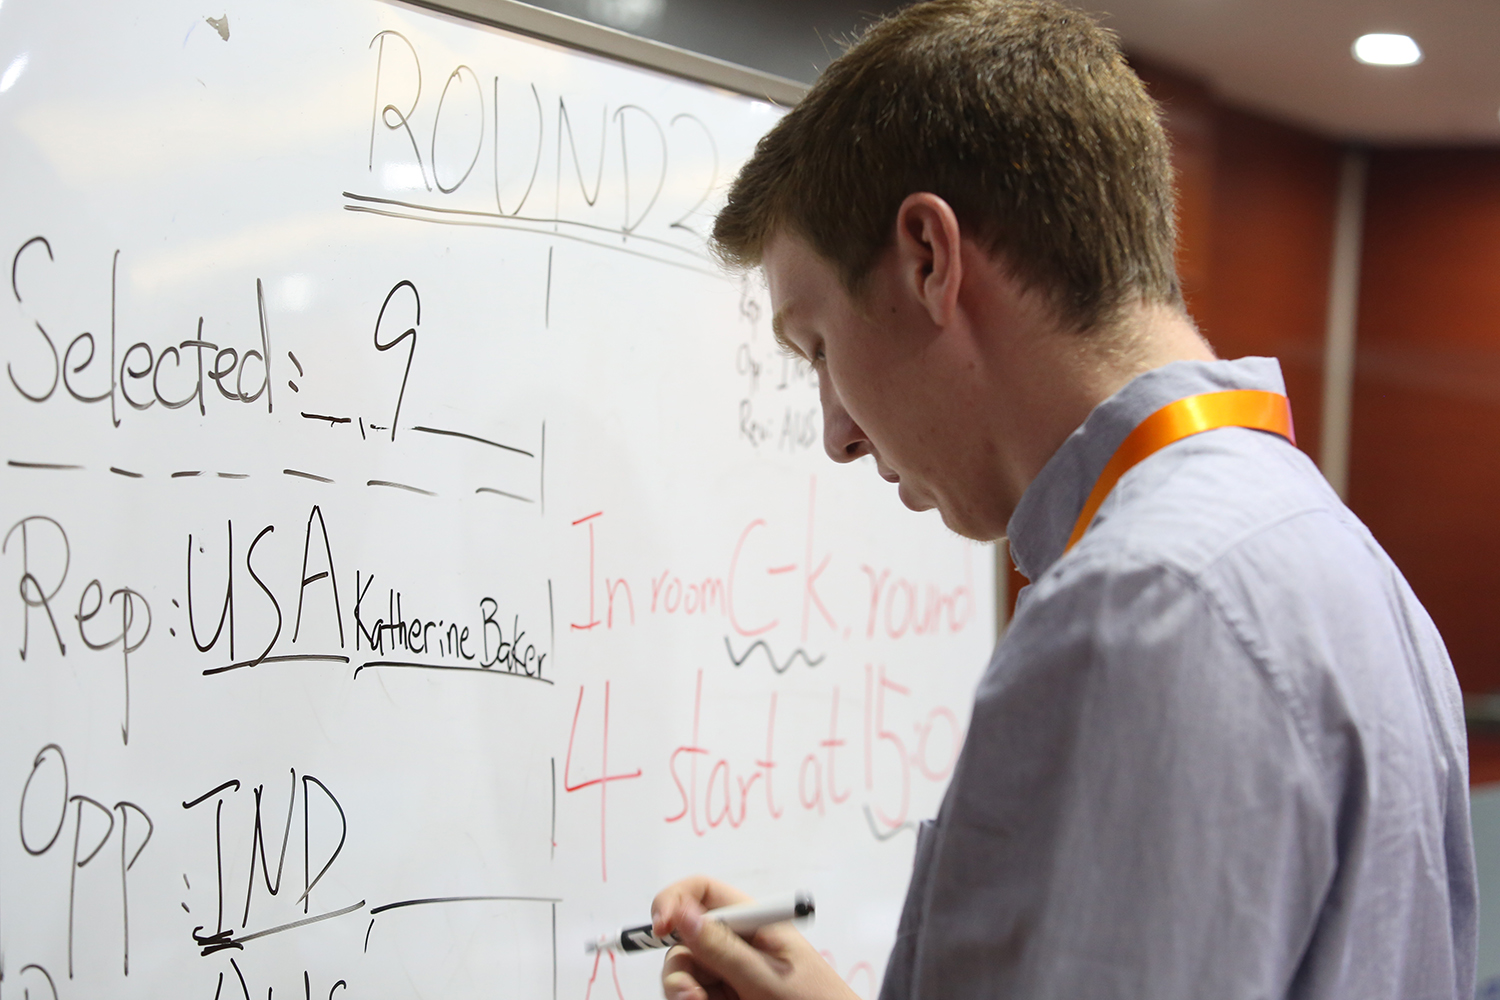 ROUND 2
Selected: 9
Rep: USA Katherine Baker
Opp: IND
Opp:
Rev: AUS
In room C-k, round
4 start at 15:0